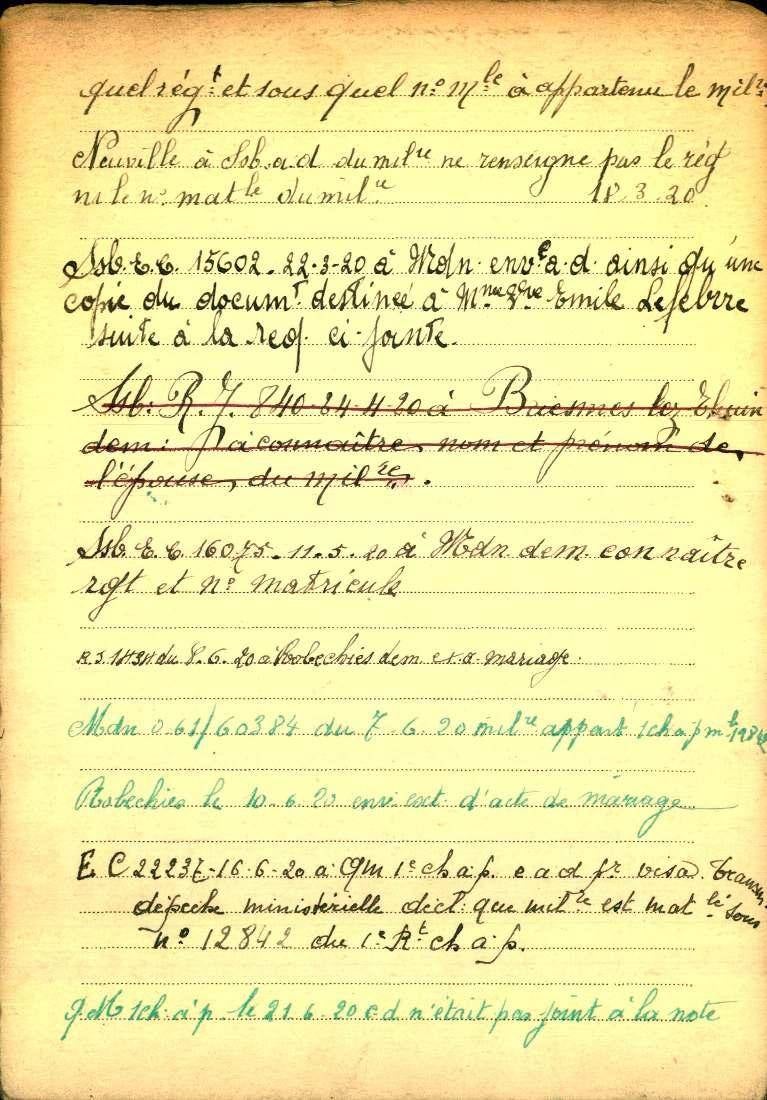 quel rég.t et sous quel n° Mle à appartenu le mil.re
Neuville à Ssb. a.d du milre ne renseigne pas le rég
ni le n° matle du milre 18.3.20.
Ssb. E.C. 15602. 22-3-20 à Mdn. enve a.d. ainsi qu'une
copie du documt destinée à Mme Vve Emile Lefebvre
suite à la req. ci-jointe.
Ssb. R.J. 840-24-4-20 à Biesmes lez Thuin
dem: à connaître, nom et prénom de
l'épouse, du milre.
Ssb. E.C. 16075. 11.5.20 à Mdn dem. connaître
rgt et n° matricule
R.J. 1434 du 8.6.20 à Robechies dem. mariage.
Mdn 0 61/60384 du 7 6 20 milre appart 1 ch à p mle 12842
Robechies le 10.6.20 envi ext. d'acte de mariage
E C 22237-16-6-20 à QM 1e ch.à.p. e a d pr visa. Transm.
dépêche ministérielle décl. que milre est matlé sous
n° 12842 du 1e Rt ch à.p.
Q.M 1ch. à p le 21.6.20 e d n'était pas joint à la note